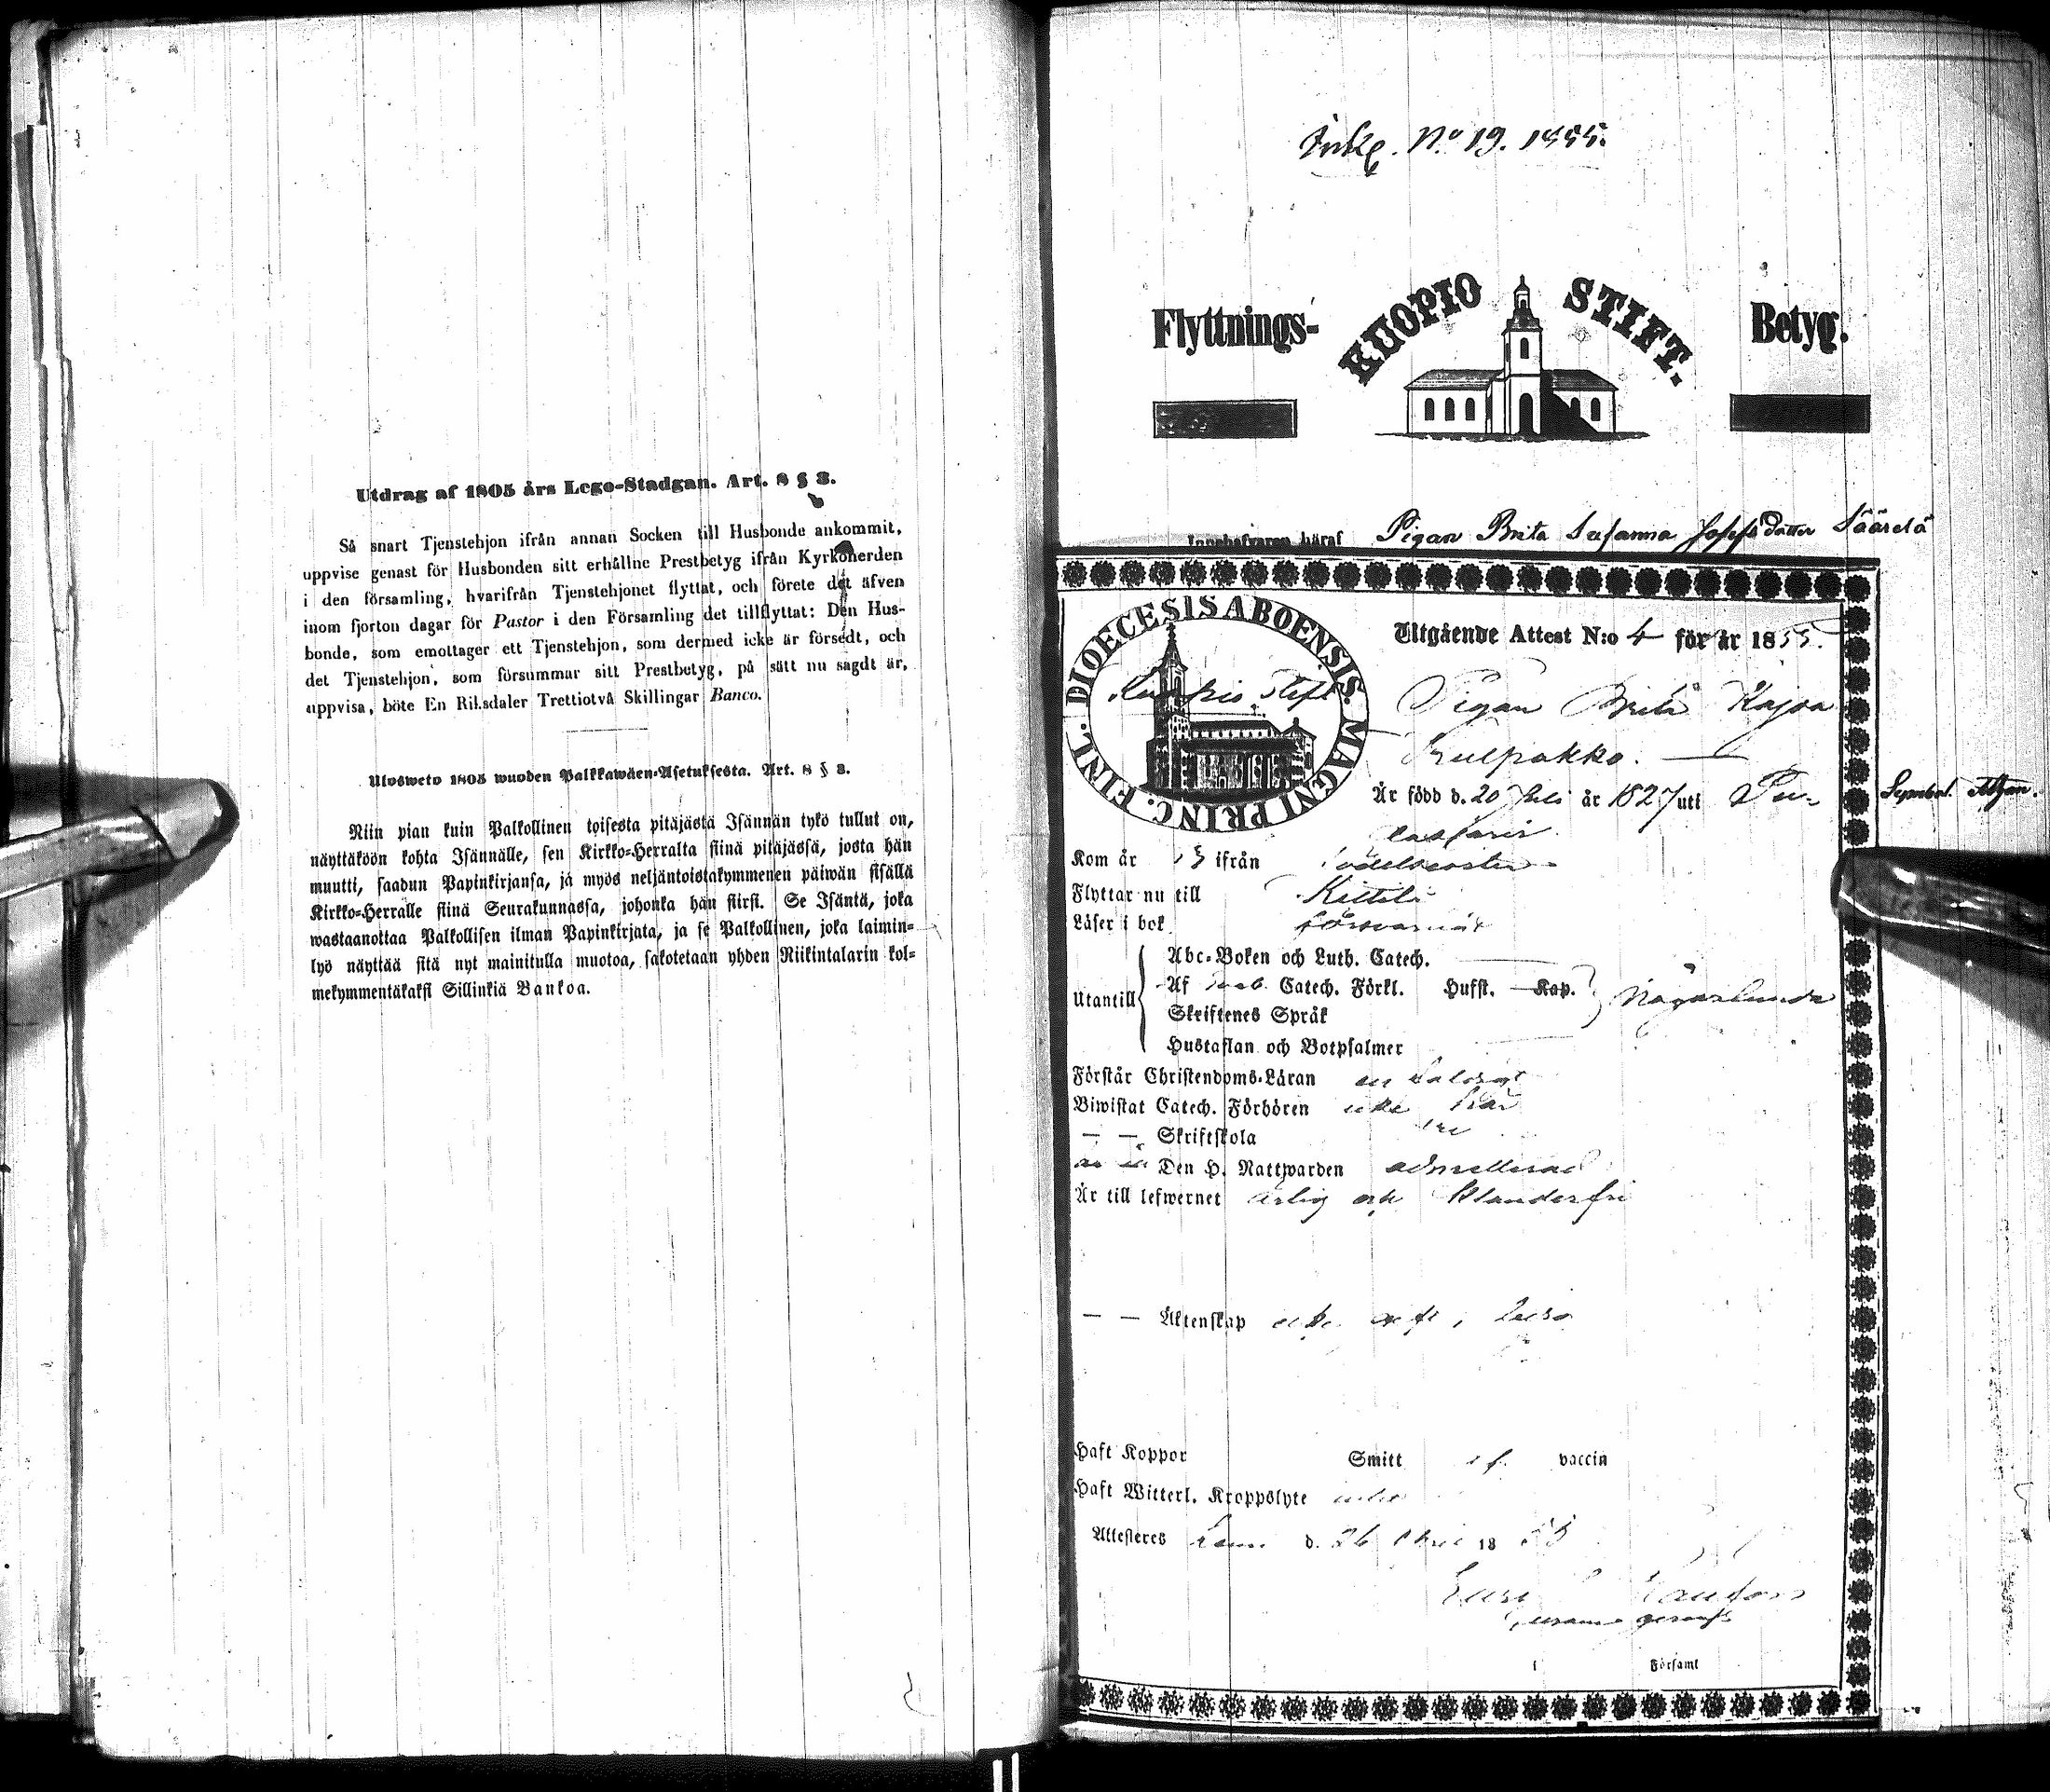 Utdrag af 1805 års Lego-Stadgan. Art. 8 § 3.
Så snart Tjenstehjon ifrån annan Socken till Husbonde ankommit,
uppvise genast för Husbonden sitt erhållne Prestbetyg ifrån Kyrkoherden
i den församling, hvarifrån Tjenstehjonet flyttat, och förete det äfven
inom fjorton dagar för Pastor i den Församling det tillflyttat: Den Hus-
bonde, som emottager ett Tjenstehjon, som dermed icke är försedt, och
det Tjenstehjon, som försummar sitt Prestbetyg, på sätt nu sagdt är,
uppvisa, böte En Riksdaler Trettiotvå Skillingar Banco.
Ulosweto 1805 wuoden Palkkawäen-Asetuksesta. Art. 8 § 3.
Niin pian kuin Palkollinen toisesta pitäjästä Isännän tykö tullut on,
näyttäköön kohta Isännälle, sen Kirkko-Herralta siinä pitäjässä, josta hän
muutti, saadun Papinkirjansa, ja myös neljäntoistakymmenen päiwän sisällä
Kirkko-Herralle siinä Seurakunnassa, johonka hän siirsi. Se Isäntä, joka
wastaanottaa Palkollisen ilman Papinkirjata, ja se Palkollinen, joka laimin-
lyö näyttää sitä nyt mainitulla muotoa, sakotetaan yhden Riikintalarin kol-
mekymmentäkaksi Sillinkiä Bankoa.
N:o 19. 1855.
Flyttnings- KUOPIO STIFT. Betyg.
Innehafvaren häraf Pigan Brita Susanna Josefsdotter Säärelä
DIOECESIS ABOENSIS. MAGNI PRINC. FINL.
Kuopio Stift
Utgående Attest N:o 4 för år 1855.
Pigan Brita Kajsa
Kulpakko.
Är född d. 20 Juli år 1827 uti Pu- Symbol. Athan.
dasjärvi
Kom år ifrån
Flyttar nu till Kittilä
Läser i bok försvarligt
Abc-Boken och Luth. Catech.
Utantill Af Catech. Förkl. Hufst. Kap. Någorlunda
Skriftenes Språk
Hustaflan och Botpsalmer
Förstår Christendoms-Läran
Biwistat Catech. Förhören icke här
— — Skriftskola
Den H. Nattwarden admitterad
Är till lefwernet ärlig och klanderfri
— — Äktenskap
Haft Koppor Smitt vaccin
Haft Witterl. Kroppslyte
Attesteres d. 26 18 55
Församl